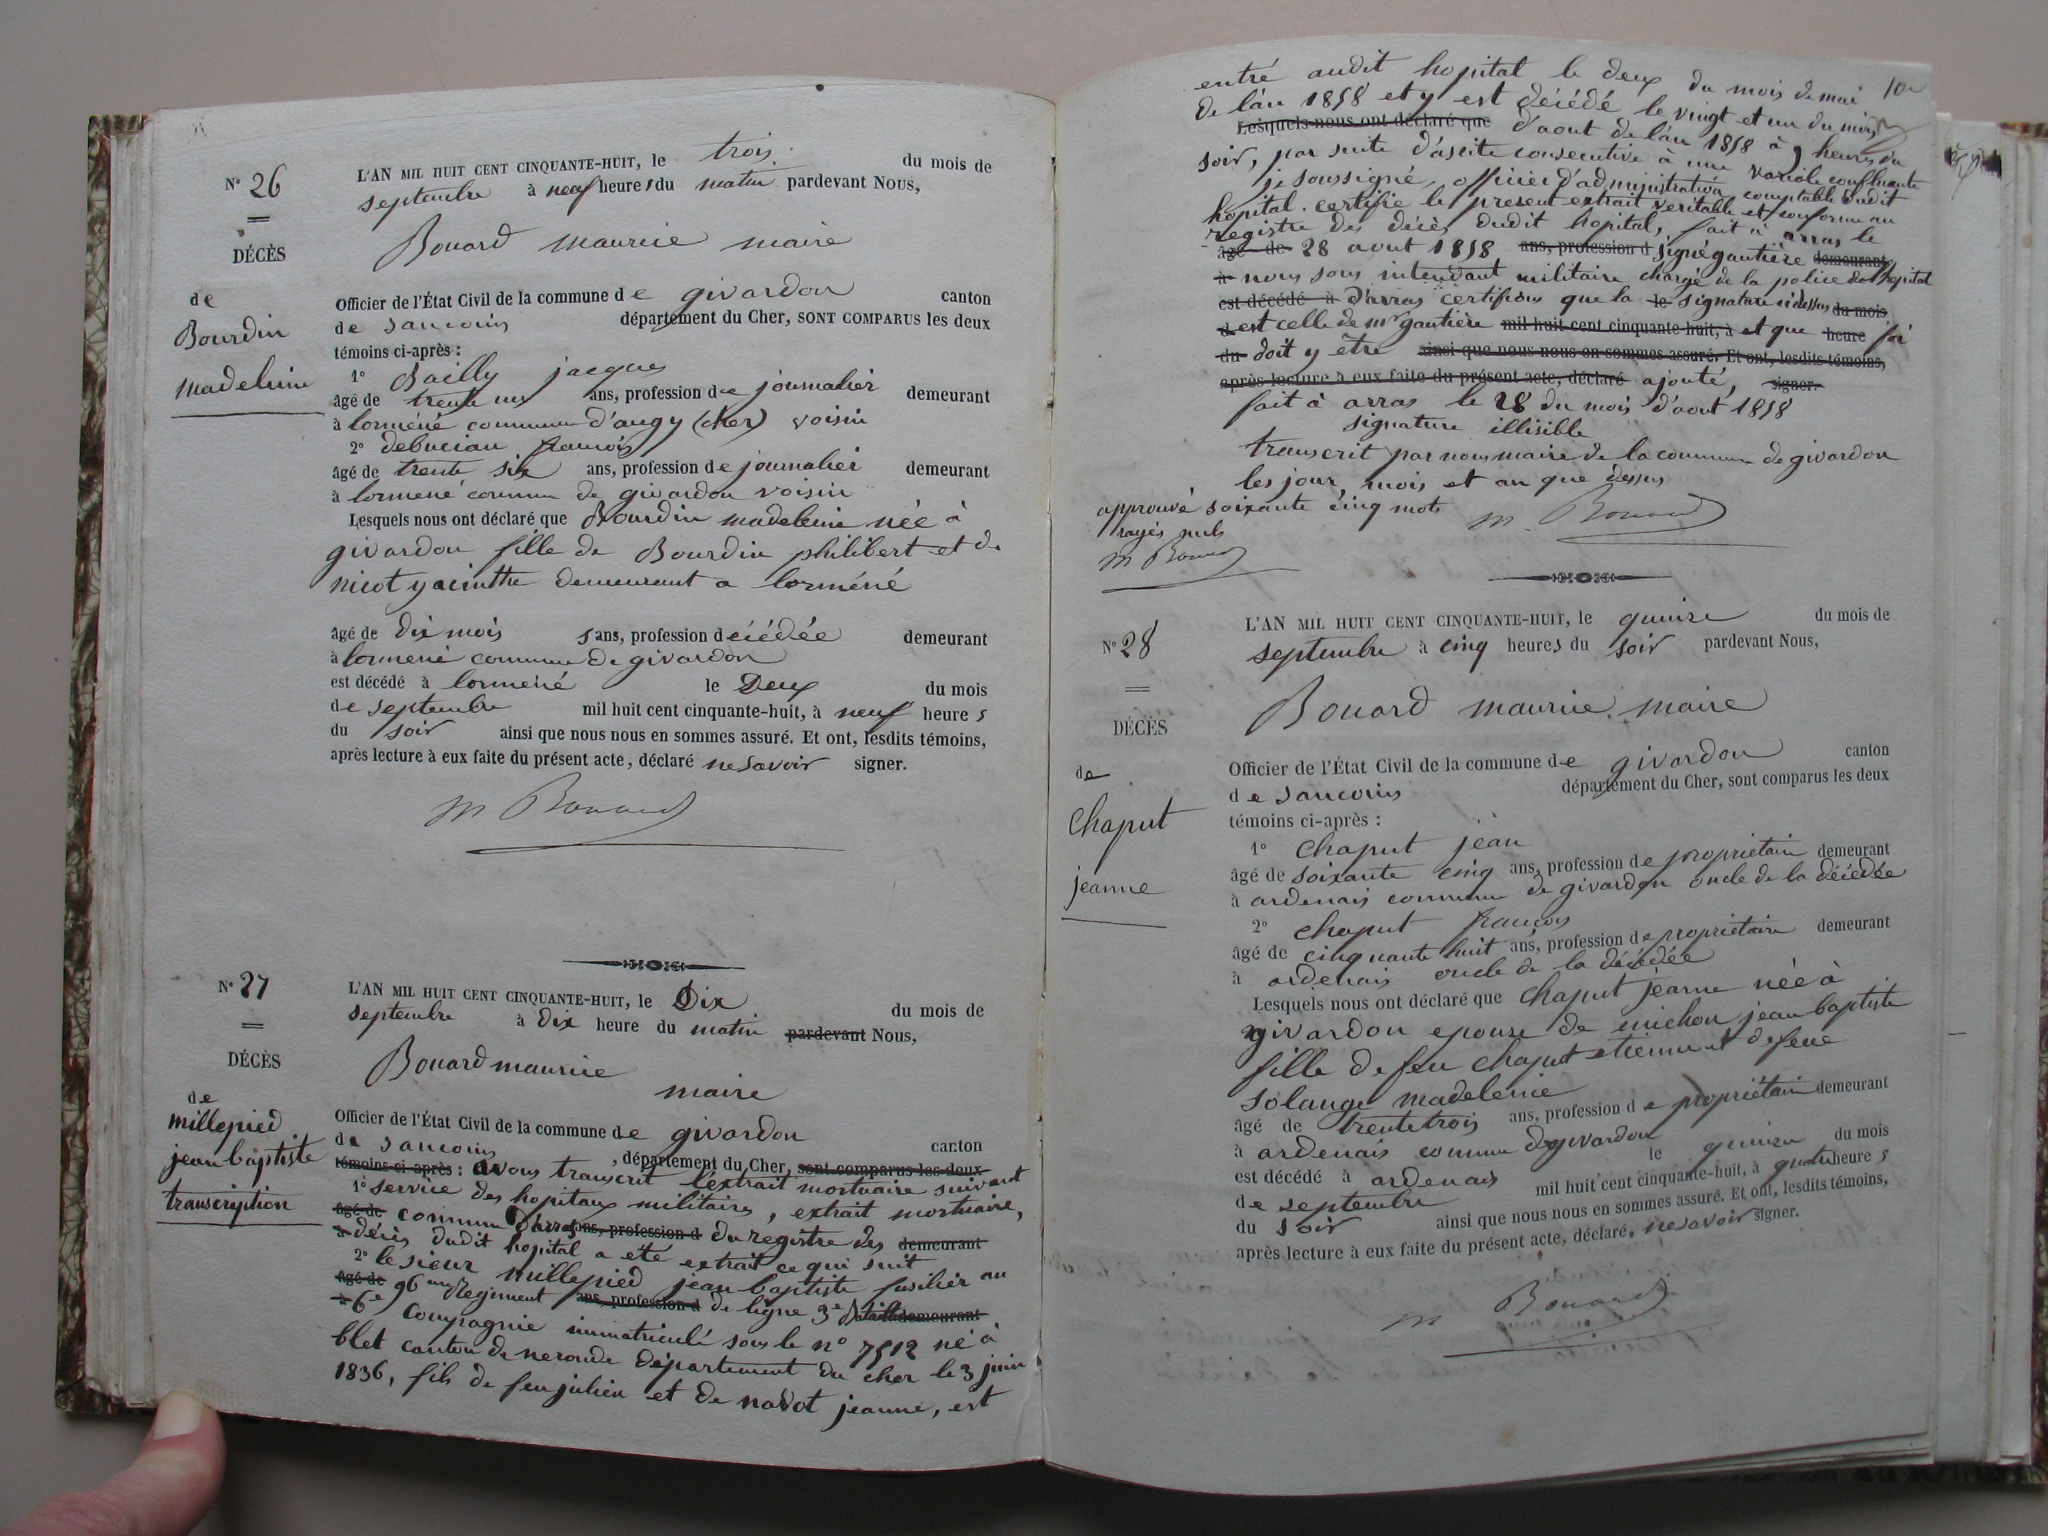 N° 26
DÉCÈS
de
Bourdin
madeleine
L'AN MIL HUIT CENT CINQUANTE-HUIT, le trois du mois de
septembre à neuf heures du matin pardevant NOUS,
Bouard maurice maire
Officier de l'État Civil de la commune de givardon canton
de sancoins département du Cher, SONT COMPARUS les deux
témoins ci-après :
1° Bailly jacques
âgé de trente un ans, profession de journalier demeurant
à lorméné commune d'augy (cher) voisin
2° debucian françois
âgé de trente six ans, profession de journalier demeurant
à lormené commune de givardon voisin
Lesquels nous ont déclaré que Bourdin madeleine née à
givardon fille de Bourdin philibert et de
nicot yacinthe demeurant a lorméné
âgé de dix mois ans, profession décédée demeurant
à lormené commune de givardon
est décédé à lorméné le Deux du mois
de septembre mil huit cent cinquante-huit, à neuf heures
du soir ainsi que nous nous en sommes assuré. Et ont, lesdits témoins,
après lecture à eux faite du présent acte, déclaré ne savoir signer.
M Bouard
N° 27
DÉCÈS
de
millepied
jean baptiste
transcription
L'AN MIL HUIT CENT CINQUANTE-HUIT, le Dix du mois de
septembre à dix heure du matin pardevant Nous,
Bouard maurice
maire
Officier de l'État Civil de la commune de givardon canton
de sancoins, département du Cher, sont comparus les deux
témoins ci-après : avons transcrit l'extrait mortuaire suivant
1° service des hopitaux militaires, extrait mortuaire,
âgé de commune d'arras ans, profession d du registre des demeurant
à décès dudit hopital a eté extrait ce qui suit
2° le sieur millepied jean baptiste fusilier au
âgé de 96me regiment ans, profession d de ligne 3e Bataill demeurant
à 6e compagnie immatriculé sous le n° 7512 né à
blet canton de neronde département du cher le 3 juin
1836, fils de feu julien et de nadot jeanne, est
10e
entré audit hopital le deux du mois de mai
de l'an 1858 et y est décédé le vingt et un du mois
Lesquels nous ont déclaré que d'aout de l'an 1858 à 9 heures du
soir, par suite d'ascite consecutive à une variole confluante
je soussigné, officier d'administration comptable dudit
hopital certifie le present extrait veritable et conforme au
registre des décès dudit hopital, fait à arras le
âgé de 28 aout 1858 ans, profession d signé gautière demeurant
à nous sous intendant militaire chargé de la police de l'hopital
est décédé à d'arras certifions que la le signature ci dessus du mois
d est celle de mr gautière mil huit cent cinquante-huit, à et que heure foi
du doit y être ainsi que nous nous en sommes assuré. Et ont, lesdits témoins,
après lecture à eux faite du présent acte, déclaré ajouté, signer.
fait à arras le 28 du mois d'aout 1858
signature illisible
transcrit par nous maire de la commune de givardon
les jour, mois et an que dessus
approuvé soixante cinq mots
rayés nuls
M Bouard
M. Bouard
N° 28
DÉCÈS
de
chaput
jeanne
L'AN MIL HUIT CENT CINQUANTE-HUIT, le quinze du mois de
septembre à cinq heures du soir pardevant Nous,
Bouard maurice maire
Officier de l'État Civil de la commune de givardon canton
de sancoins département du Cher, sont comparus les deux
témoins ci-après :
1° chaput jean
âgé de soixante cinq ans, profession de propriétaire demeurant
à ardenais commune de givardon oncle de la décédée
2° chaput françois
âgé de cinquante huit ans, profession de propriétaire demeurant
à ardenais oncle de la décédée
Lesquels nous ont déclaré que chaput jeanne née à
givardon epouse de michon jean baptiste
fille de feu chaput etienne et de feue
solange madeleine
âgé de trente trois ans, profession de propriétaire demeurant
à ardenais commune de givardon
est décédé à ardenais le quinze du mois
de septembre mil huit cent cinquante-huit, à quatre heures
du soir ainsi que nous nous en sommes assuré. Et ont, lesdits témoins,
après lecture à eux faite du présent acte, déclaré, ne savoir signer.
M Bouard